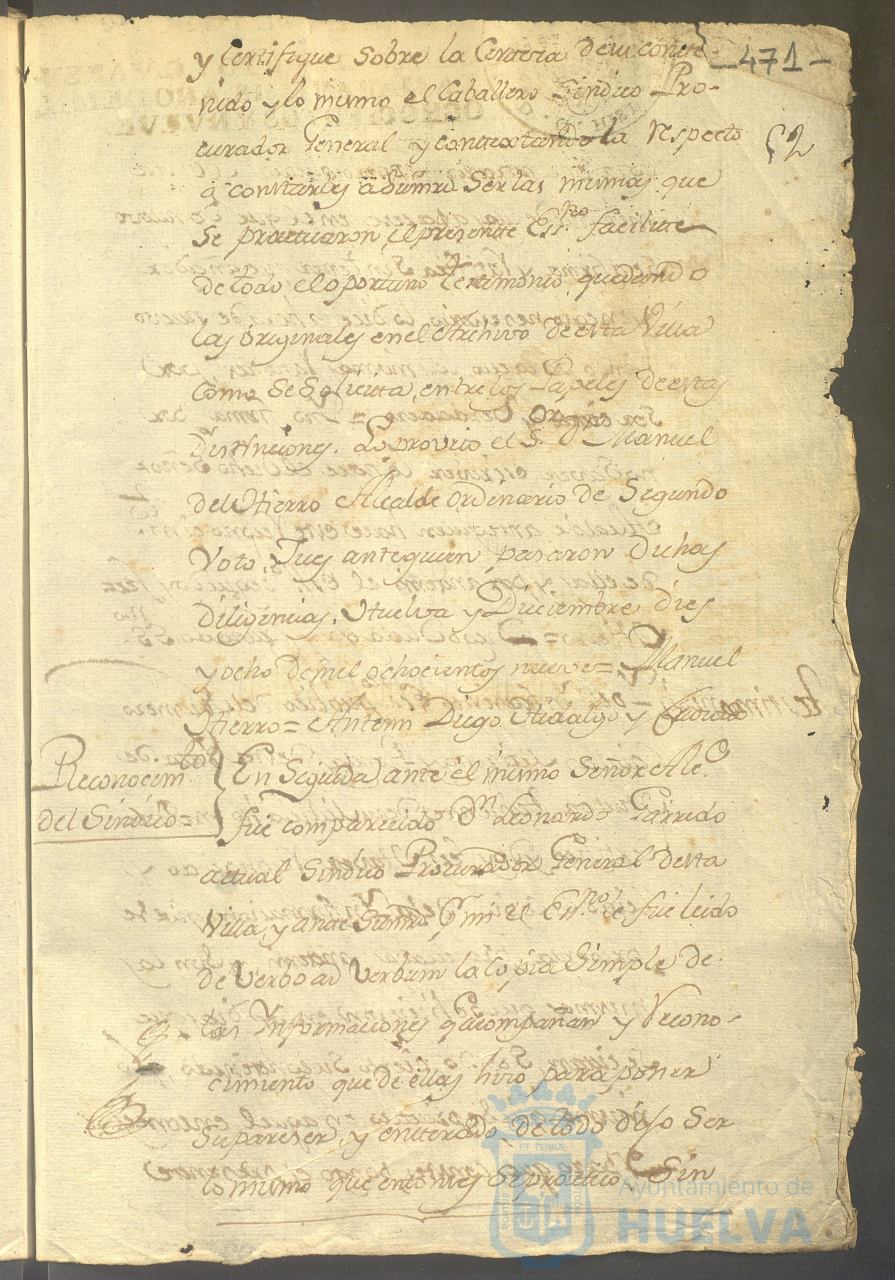 -471-
52
y Certifique sobre la Certeza de su conte-
nido y lo mismo el Caballero Sindico Pro-
curador General y contextando la respecto
á constarles a Sumrd. Ser las mismas que
Se practicaron el presente Essno. facilite
de todo el oportuno testimonio quedando
las originales en el Archivo de esta Villa
Como Se Solicita, entre los Papeles de estas
Distinciones. Lo proveio el S. Dn. Manuel
del Hierro Alcalde ordinario de Segundo
Voto, Jues ante quien pasaron Dichas
Diligencias. Huelva y Diciembre dies
y ocho de mil ochocientos nueve = Manuel
Hierro = Antemi Diego Hidalgo y
Reconocimto
del Sindico =
En Seguida ante el mismo Señor Alce.
fue comparecido Dn. Leonardo Garrido
actual Sindico Procurador General desta
Villa, y ante Sumrd. Pr. mi el Essno. le fue leido
de Verbo ad Verbum la Copia Simple de
las Informaciones qe. acompañan y recono-
cimiento que de ellas hizo para poner
Suparecer, y enterado de todo dijo Ser
lo mismo que entonces Se proveio, Sin
Ayuntamiento de
HUELVA